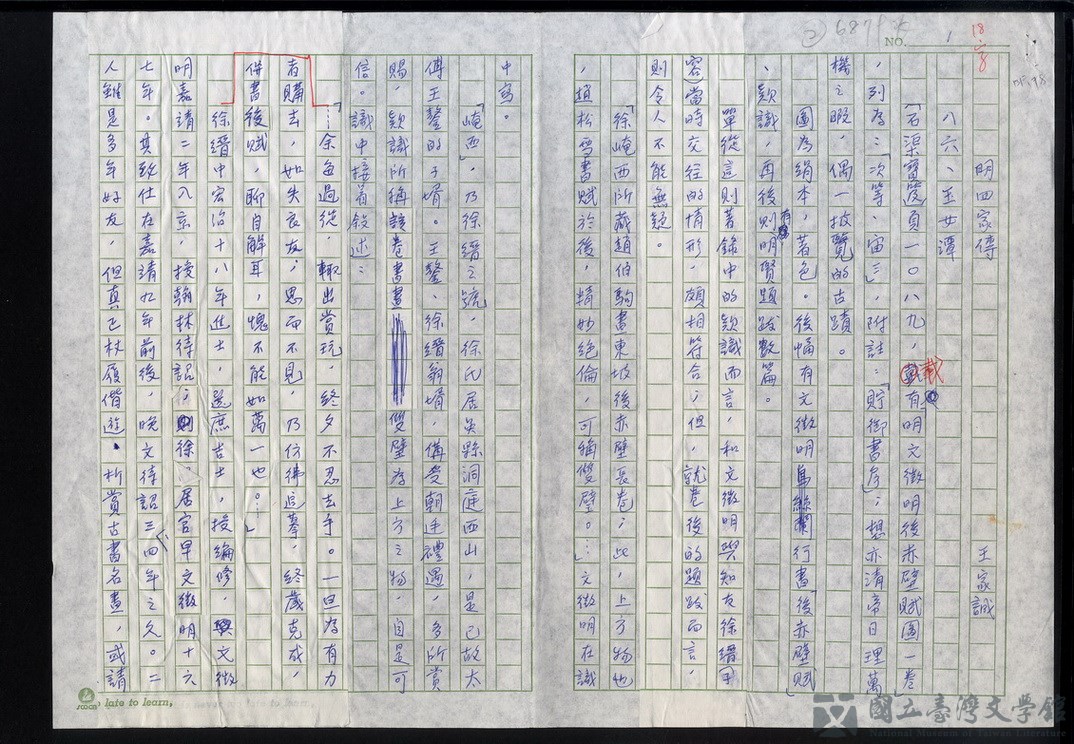 NO. 1
18字
② 687
明四家傳 王家誠
八六、玉女潭
「石渠寶笈」頁一〇八九,載有明文徵明後赤壁賦圖一卷
,列為:「次等、宙三」,附註:「貯御書房」;想亦清帝日理萬
機之暇,偶一披覽的古蹟。
圖為絹本,著色。後幅有文徵明烏絲闌行書「後赤壁賦」
、款識,再後則有明賢題跋數篇。
單從這則著錄中的款識而言,和文徵明與知友徐縉
當時交往的情形,頗相符合;但,就卷後的題跋而言,
則令人不能無疑。
「徐崦西所藏趙伯駒畫東坡後赤壁長卷;此,上方物也
,趙松雪書賦於後,精妙絕倫,可稱雙璧。…」文徵明在識
中寫。
「崦西」,乃徐縉之號,徐氏居吳縣洞庭西山,是已故太
傅王鏊的子婿。王鏊、徐縉翁婿,備受朝廷禮遇,多所賞
賜,款識所稱該卷書畫雙璧為上方之物,自是可
信。識中接著敘述:
「…余每過從,輒出賞玩,終夕不忍去手。一旦為有力
者購去,如失良友;思而不見,乃仿彿追摹,終歲克成,
併書後賦,聊自解耳,愧不能如萬一也。…」
徐縉中宏治十八年進士,選庶吉士,授編修,與文徵
明嘉靖二年入京,授翰林待詔;則徐,居官早文徵明十六
七年。其致仕在嘉靖九年前後,晚文待詔三、四年之久。二
人雖是多年好友,但真正杖履偕遊,析賞古書名畫,或請
late to learn,
國立臺灣文學館
National Museum of Taiwan Literature